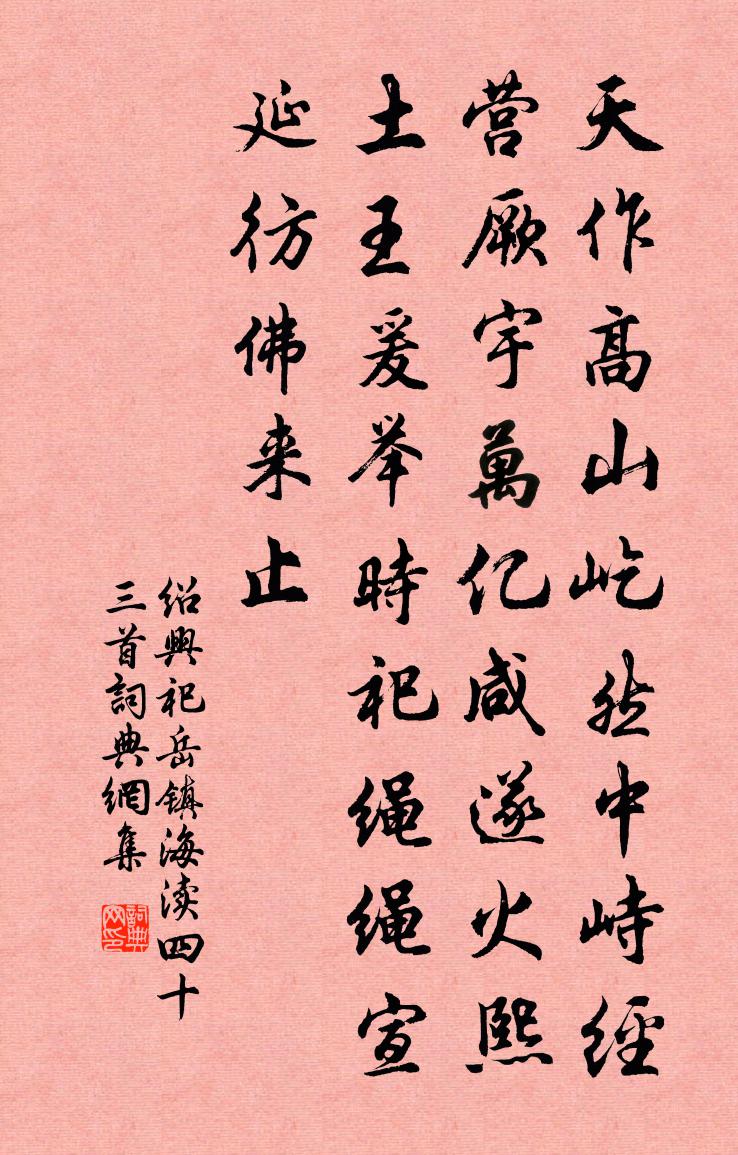 天作高山屹然中峙經
营厥宇萬亿咸遂火熙
土王爰举時祀绳绳宣
延彷佛来止
绍興祀岳镇海渎四十
三首詞典網集
詞典网印